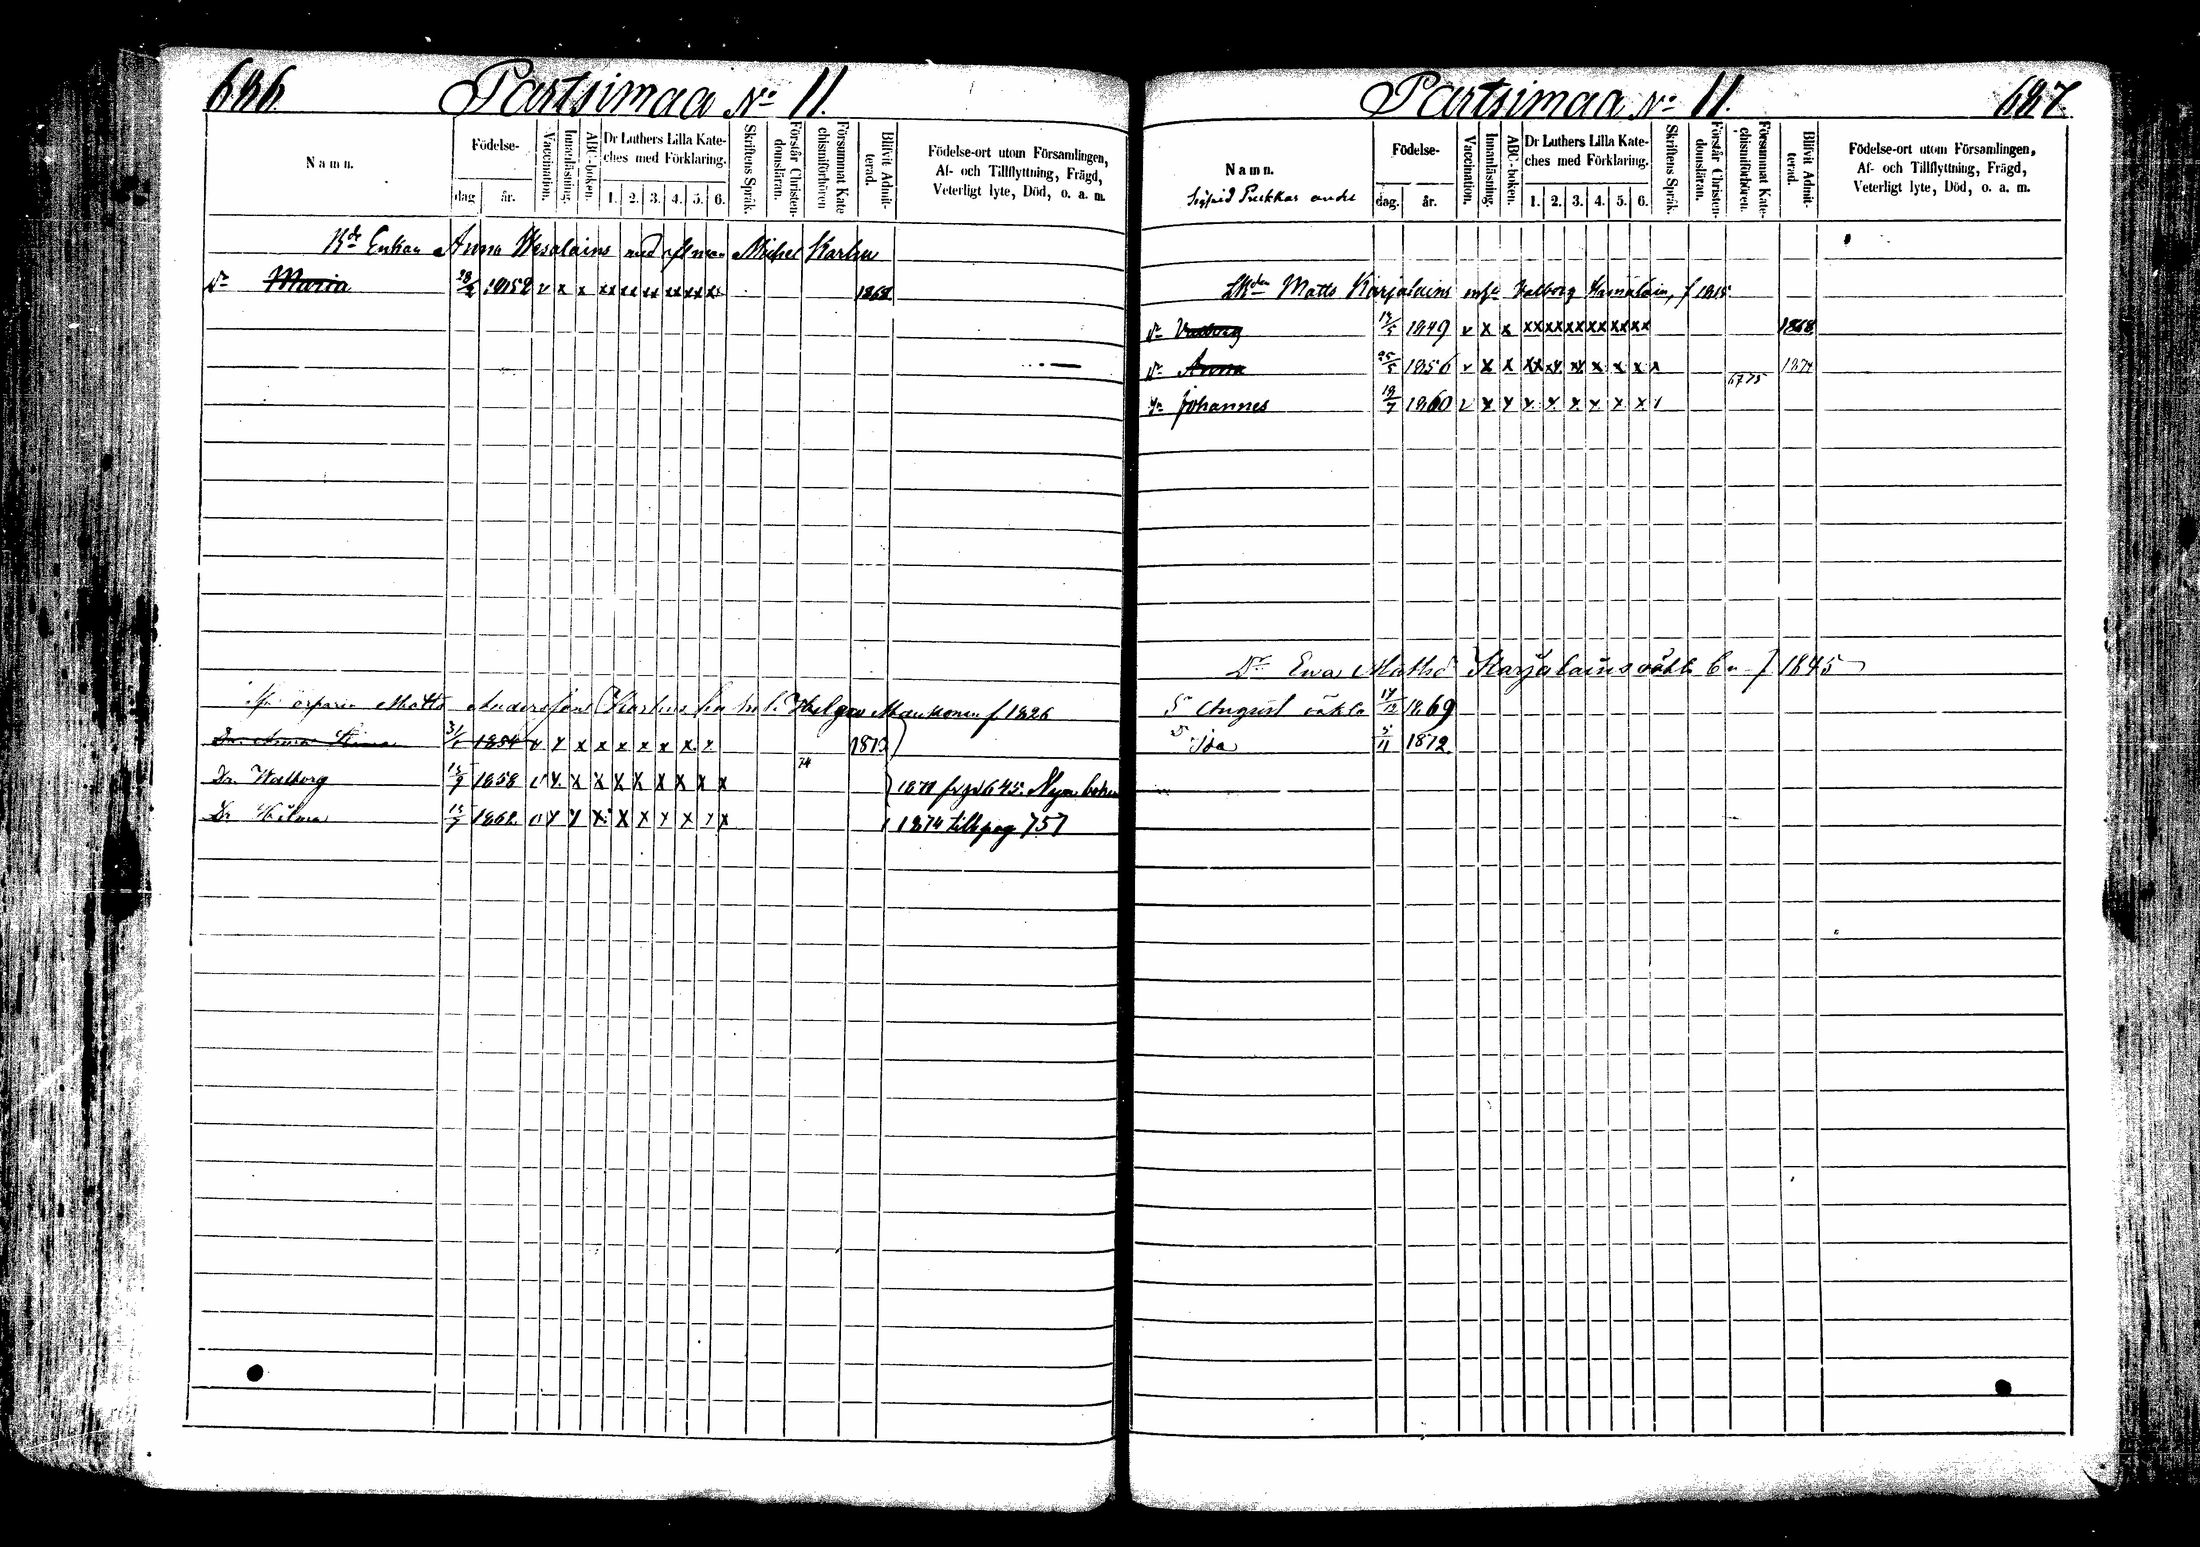 686 Partsimaa No 11.
Namn.
Födelse-
dag år.
Vaccination.
Innanläsning.
ABC-boken.
Dr Luthers Lilla Kate-
ches med Förklaring.
1. 2. 3. 4. 5. 6.
Skriftens Språk.
Förstår Christen-
domsläran.
Försummat Kate
chismiförhören
Blifvit Admit-
terad.
Födelse-ort utom Församlingen,
Af- och Tillflyttning, Frägd,
Veterligt lyte, Död, o. a. m.
Enkan Anna Wesalains med Michel Karhu
Dr Maria 28/2 1852 v x x xx xx xx xx xx xx 1868
Matts Andersson Helga Maukonen f 1826
Dr. Anna Stina 31/1 1854 v x x x x x x x x 1873
74
Dr. Walborg 1858 v x x x x x x x x 1871 fr pg 645. Nya boken
Dr Hilma 1862 v x x x x x x x x 1874 till pag 757
Partsimaa No 11. 687
Namn.
Sigfrid Pukkas andel
Födelse-
dag. år.
Vaccination.
Innanläsning.
ABC-boken.
Dr Luthers Lilla Kate-
ches med Förklaring.
1. 2. 3. 4. 5. 6.
Skriftens Språk.
Förstår Christen-
domsläran.
Försummat Kate-
chismiförhören.
Blifvit Admit-
terad.
Födelse-ort utom Församlingen,
Af- och Tillflyttning, Frägd,
Veterligt lyte, Död, o. a. m.
Matts Karjalains Valborg Hämäläin, f 1815
Dr Valborg 1849 v x x xx xx xx xx xx xx 1868
Dr Anna 25/5 1856 v x x xx x x x x x x 1874
67 75
Sn Johannes 19/7 1860 v x x x x x x x x
Dr Ewa Mattsd Karjalains oäkta bn f 1845
S August oäkta 17/12 1869
D Ida 5/11 1872